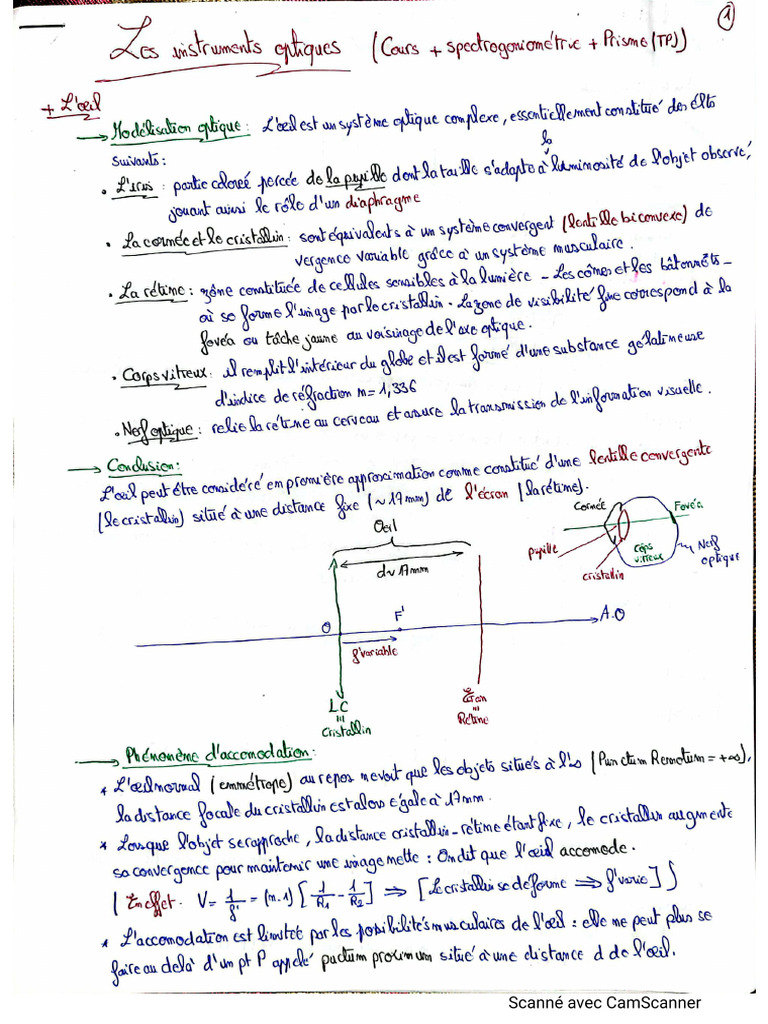 1
Les instruments optiques (Cours + spectrogoniométrie + Prisme (TP))
+ L'œil
→ Modélisation optique : L'œil est un système optique complexe, essentiellement constitué des élts
suivants :
• L'iris : partie colorée percée de la pupille dont la taille s'adapte à la luminosité de l'objet observé,
jouant ainsi le rôle d'un diaphragme
• La cornée et le cristallin : sont équivalents à un système convergent (lentille biconvexe) de
vergence variable grâce à un système musculaire.
• La rétine : zône constituée de cellules sensibles à la lumière - Les cônes et les bâtonnêts -
où se forme l'image par le cristallin. La zone de visibilité fine correspond à la
fovéa ou tâche jaune au voisinage de l'axe optique.
• Corps vitreux : il remplit l'intérieur du globe et il est formé d'une substance gélatineuse
d'indice de réfraction n = 1,336
• Nerf optique : relie la rétine au cerveau et assure la transmission de l'information visuelle.
→ Conclusion :
L'œil peut être considéré en première approximation comme constitué d'une lentille convergente
(le cristallin) situé à une distance fixe (~ 17mm) de l'écran (la rétine).
Cornée
Fovéa
pupille
cristallin
Cops
vitreux
Nerf
optique
Oeil
d~17mm
O
F'
A.O
f'variable
LC
=
cristallin
Ecran
=
Rétine
→ Phénomène d'accomodation :
* L'œil normal (emmétrope) au repos ne voit que les objets situés à l'∞ (Punctum Remotum = +∞),
la distance focale du cristallin est alors égale à 17mm.
* Lorsque l'objet se rapproche, la distance cristallin-rétine étant fixe, le cristallin augmente
sa convergence pour maintenir une image nette : On dit que l'œil accomode.
( En effet : V = 1/f' = (n-1) [1/R1 - 1/R2] ⟹ [Le cristallin se déforme ⟹ f' varie] )
* L'accomodation est limitée par les possibilités musculaires de l'œil : elle ne peut plus se
faire au delà d'un pt P appelé puctum proximum situé à une distance d de l'œil.
Scanné avec CamScanner